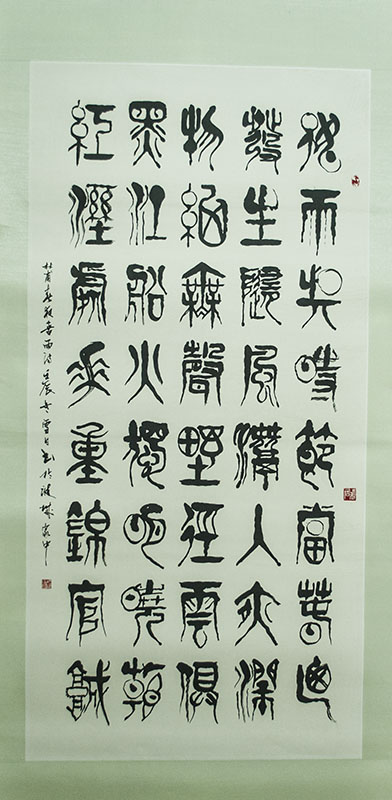 好雨知時節當春乃
發生隨風潛入夜潤
物細無聲野徑雲俱
黑江船火獨明曉看
紅溼處花重錦官城
杜甫春夜喜雨詩壬辰冬雪日書於城家中